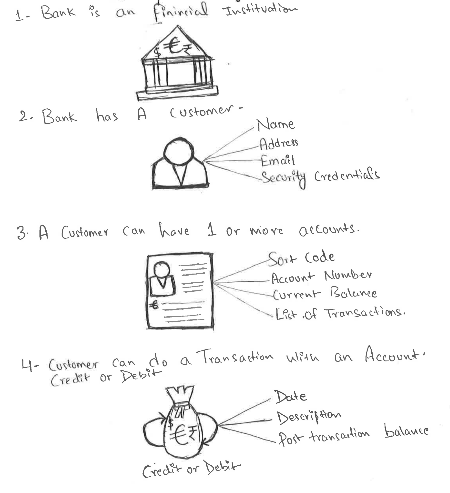 1- Bank is an Finincial Instituation
$ € ₹
2- Bank has A Customer-
Name
Address
Email
Security Credentials
3. A Customer Can have 1 or more accounts.
Sort Code
Account Number
Current Balance
List of Transactions.
€
4- Customer can do a Transaction with an Account.
Credit or Debit
Date
Description
Post transaction balance
$ € ₹
Credit or Debit